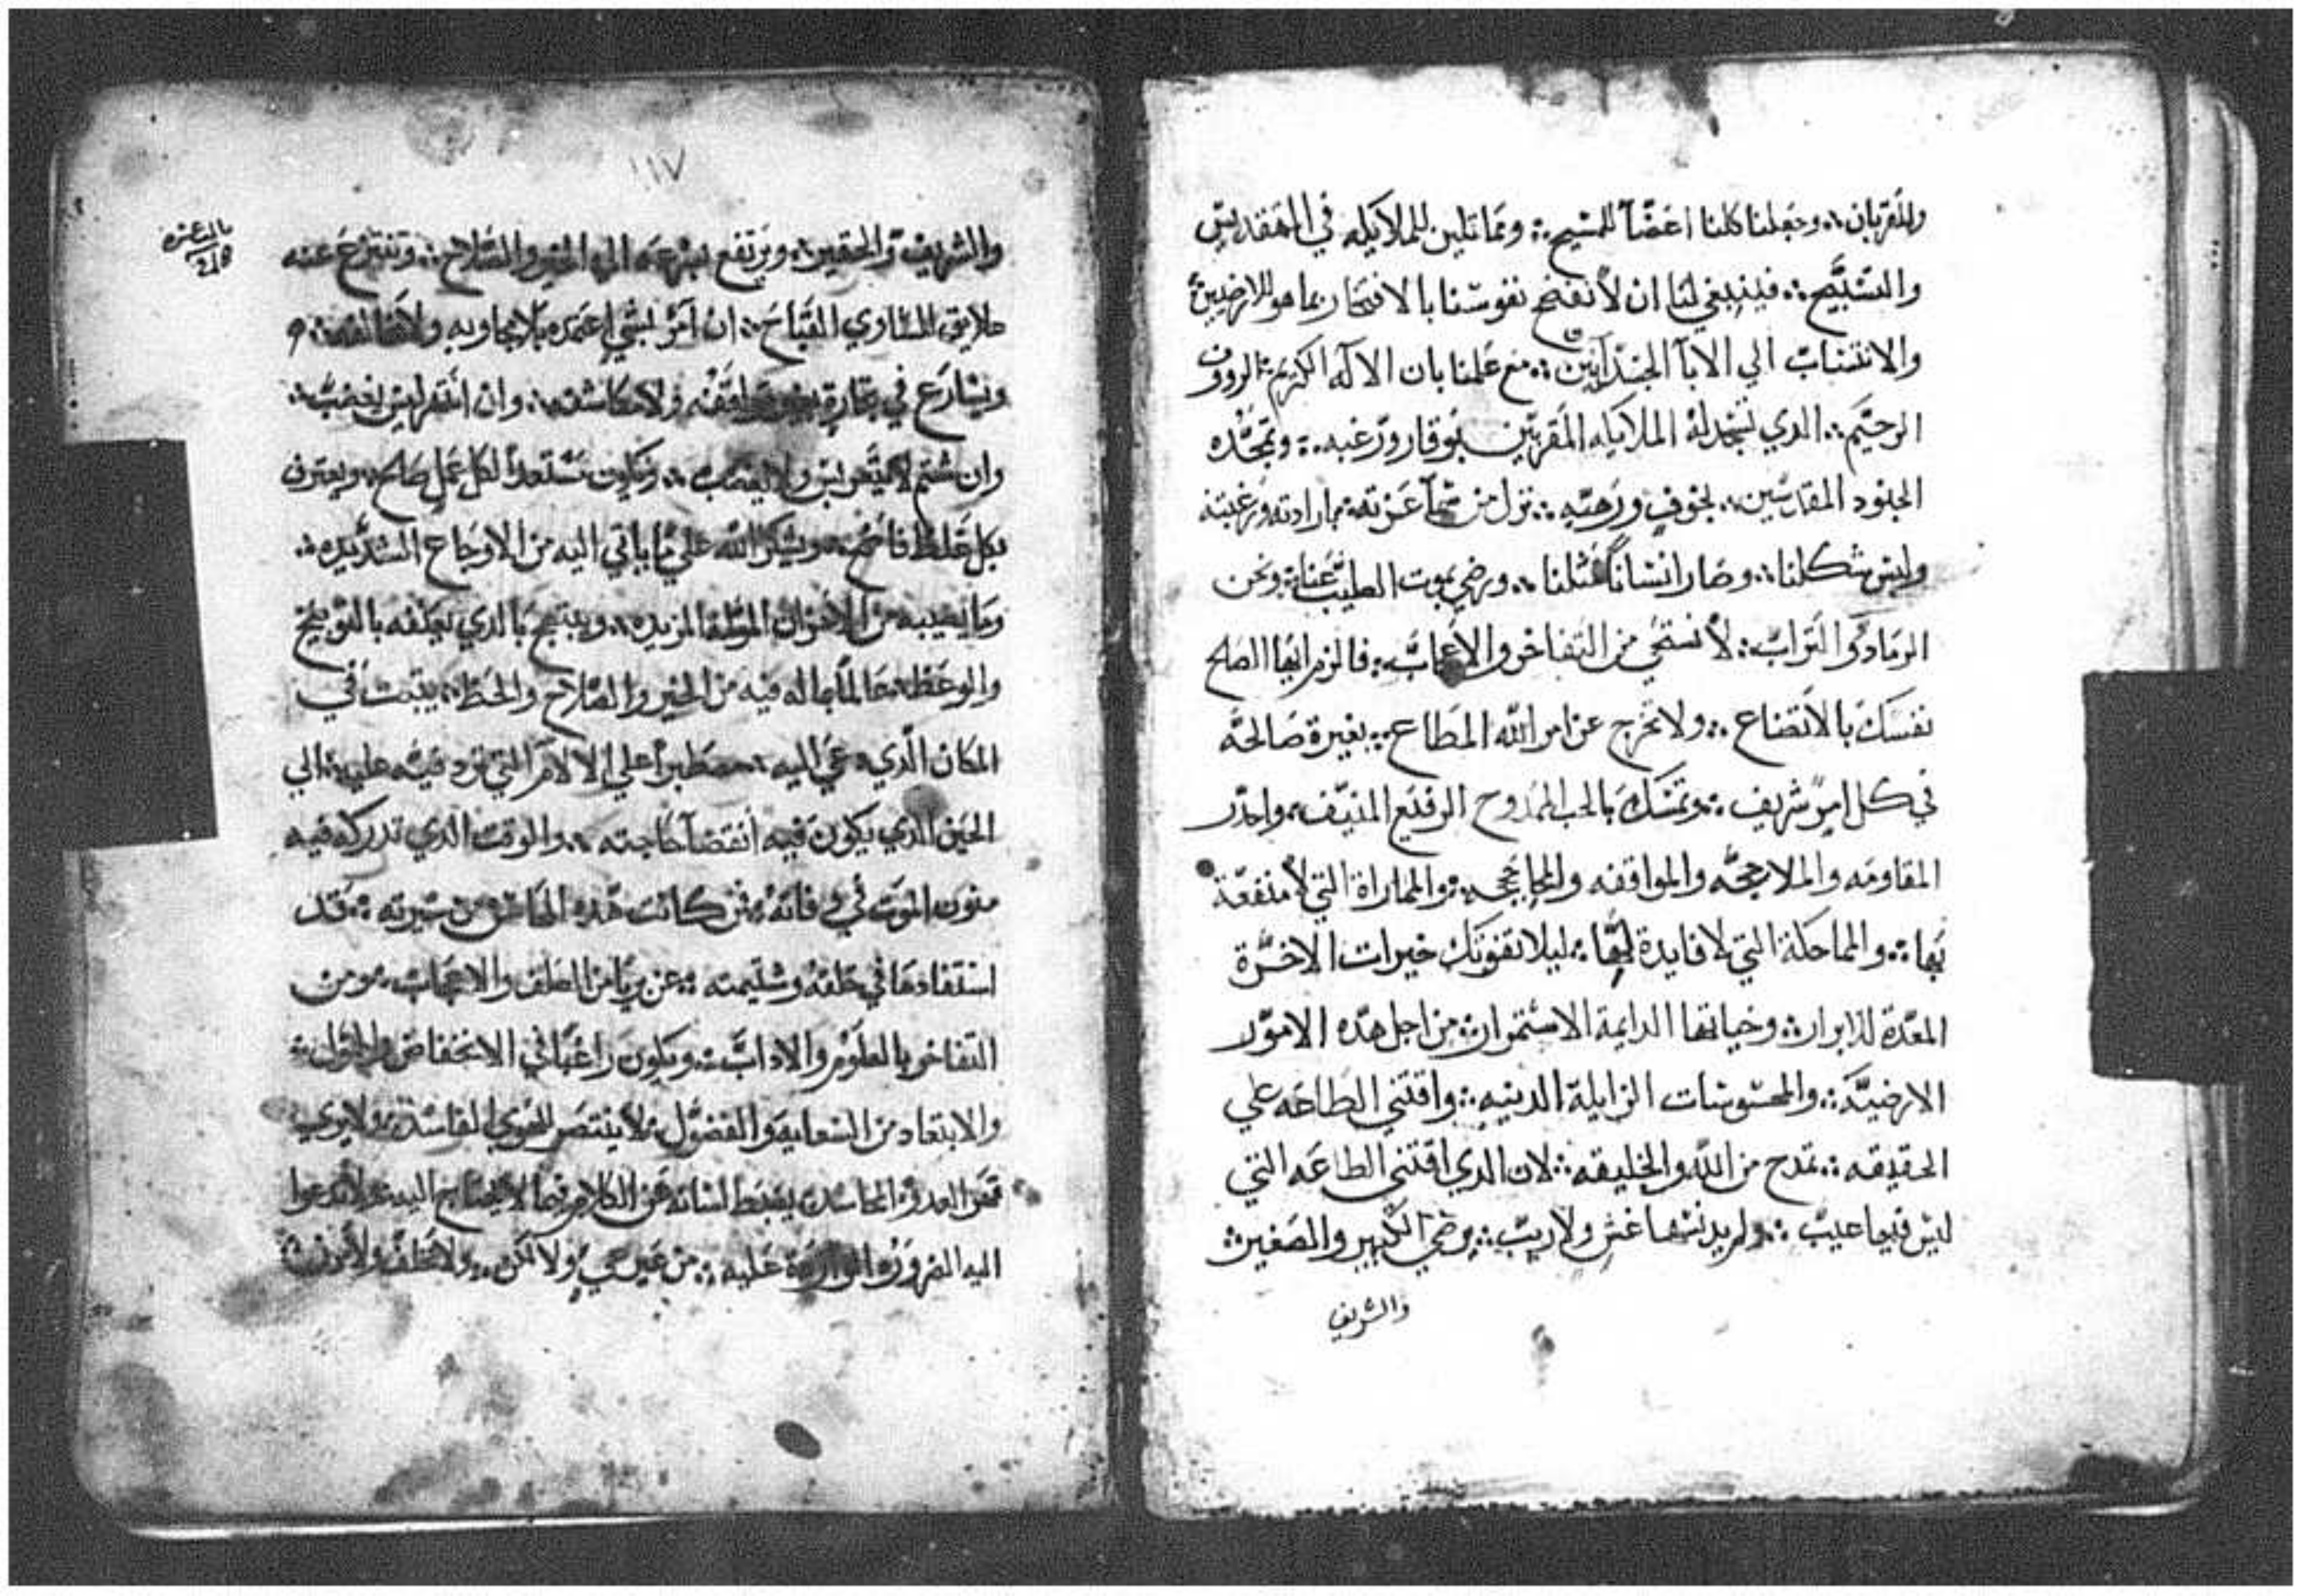 والقربان ؞ وجعلنا كلنا اعضآ للمسيح ؞ ومماتلين للملايكه في التقديس
والتسبيح ؞ فينبغي لنا ان لا نفتح نفوسنا بالافتخار بما هو للارضيين
والانتساب الي الابآ الجسدانيين ؞ مع علمنا بان الاله الكريم ؞ الرووف
الرحيم ؞ الدي تسجد له الملايكه المقربين بوقار ورغبه ؞ وتمجده
الجنود المقدسين ؞ بخوف ورهبه ؞ نزل من سمآ عزته ؞ بارادته ورغبته
ولبس شكلنا ؞ وصار انسانا مثلنا ؞ ورضي بموت الصليب عنا ؞ ونحن
الرماد والتراب ؞ لا نستحي من التفاخر والاعجاب ؞ فالزم ايها الصالح
نفسك بالاتضاع ؞ ولا تخرج عن امر الله المطاع ؞ بغيرة صالحه
في كل امر شريف ؞ وتمسك بالحب الممدوح الرفيع المنيف ؞ واحدر
المقاومه والملاججه والمواقفه والمحاججه ؞ والمماراة التي لا منفعة
بها ؞ والمماحكة التي لا فايدة لها ؞ ليلا تفوتك خيرات الاخرة
المعدة للابرار ؞ وحياتها الدايمة الاستمرار ؞ من اجل هده الامور
الارضية ؞ والمحسوسات الزايلة الدنيه ؞ واقتني الطاعه علي
الحقيقه ؞ تمدح من الله والخليقه ؞ لان الدي اقتني الطاعه التي
ليس فيها عيب ؞ ولم يدنسها غش ولا ريب ؞ يرضي الكبير والصغير ؞
والشريف
١١٧
والشريف والحقير ؞ ويرتفع بسرعه الي الخير والصلاح ؞ وتنتزع عنه
خلايق المساوي القباح ؞ ان امر بشي اعتمده بلا مجاوبه ولا مخالفه ؞
ويسارع في ؞ وان انتهر ليس يغضب ؞
وان شتم لا ولا يغضب ؞ ويكون مستعدا لكل عمل صالح ؞ ويعترف
بكل غلط فاضح ؞ ويشكر الله علي ما ياتي اليه من الاوجاع الشديده ؞
وما يصيبه من الاهوال ؞ ويبتهج بالدي يعنفه بالتوبيخ
والوعظ ؞ عالما بما له فيه من الخير والصلاح والحظ ؞ يتبت في
المكان الدي دعي اليه ؞ مصطبرا علي الالام التي ترد فيه عليه ؞ الي
الحين الدي يكون فيه انقضآ حاجته ؞ والوقت الدي تدركه فيه
منون الموت في وفاته ؞ من كانت هده المحاسن من سيرته ؞ قد
استفادها في خلقه وشيمته ؞ عن بريا من الصلف والاعجاب ؞ ومن
التفاخر بالعلوم والاداب ؞ ويكون راغبا في الانخفاض والخمول ؞
والابتعاد من السعايه والفضول ؞ لا ينتصر للهوي الفاسد ؞
العدو الحاسد ؞ يضبط لسانه عن الكلام فيما لا يحتاج اليه ؞ ولا تدعوا
اليه الضرورة ؞ من غير ولا ؞ ولا يحلف ولا